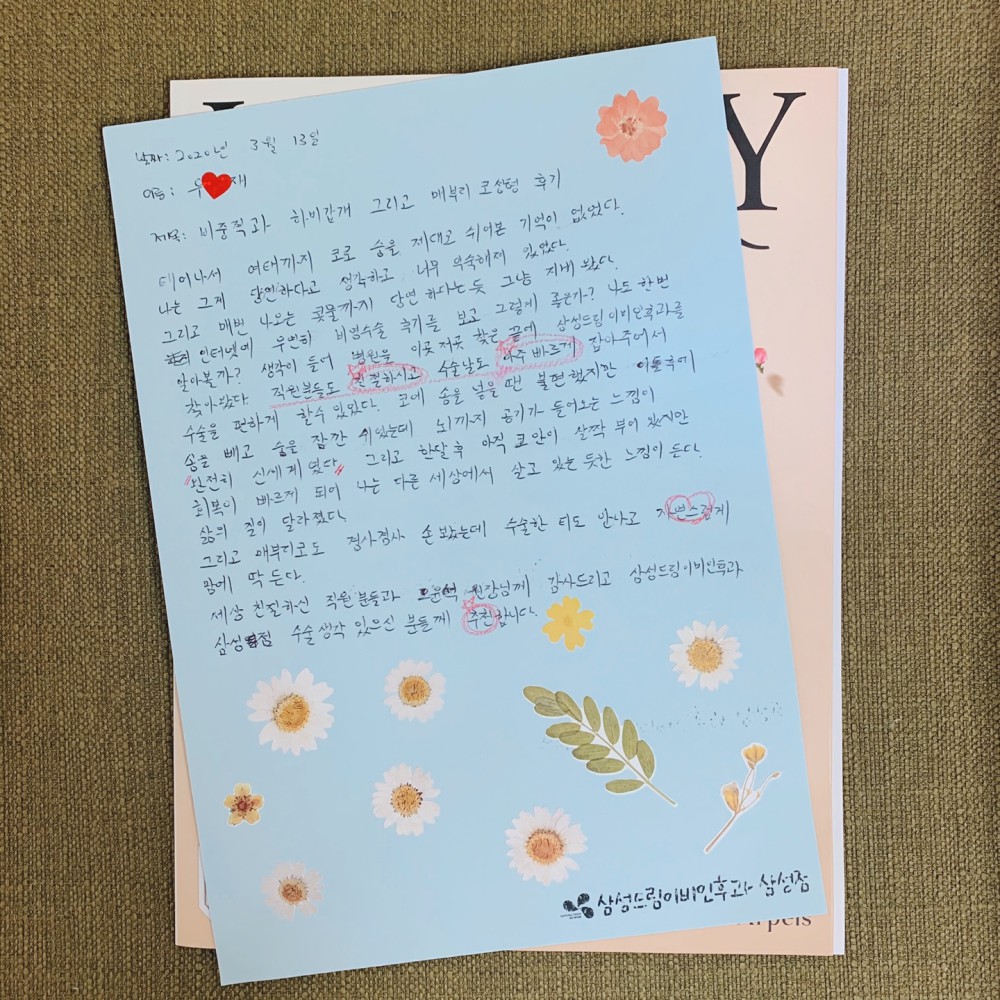 날짜: 2020년 3월 13일
이름: 우 재
제목: 비중격과 하비갑개 그리고 매부리 코성형 후기
태어나서 여태까지 코로 숨을 제대로 쉬어본 기억이 없었다.
나는 그게 당연하다고 생각하고 너무 익숙해져 있었다.
그리고 매번 나오는 콧물까지 당연하다는 듯 그냥 지내 왔다.
인터넷에 우연히 비염수술 후기를 보고 그렇게 좋은가? 나도 한번
알아볼까? 생각이 들어 병원을 이곳 저곳 찾은 끝에 삼성드림이비인후과를
찾아갔다. 직원분들도 친절하시고 수술날도 아주 빠르게 잡아주어서
수술을 편하게 할수 있었다. 코에 솜을 넣을 땐 불편했지만 이틀후에
솜을 빼고 숨을 잠깐 쉬었는데 뇌까지 공기가 들어오는 느낌이
"완전히 신세계였다" 그리고 한달 후 아직 코 안이 살짝 부어 있지만
회복이 빠르게 되어 나는 다른 세상에서 살고 있는 듯한 느낌이 든다.
삶의 질이 달라졌다.
그리고 매부리코도 겸사겸사 손 봤는데 수술한 티도 안나고 자연스럽게
맘에 딱 든다.
세상 친절하신 직원분들과 원장님께 감사드리고 삼성드림이비인후과
삼성점 수술생각 있으신 분들께 추천합니다.
삼성드림이비인후과 삼성점
Y
Arpels